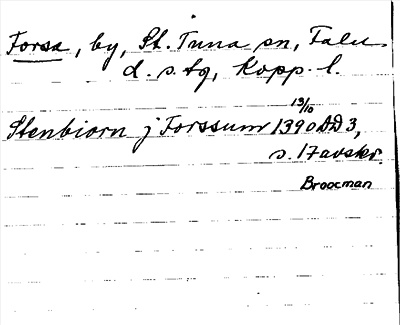 Forsa, by, St. Tuna sn, Falu
d. s. tg, Kopp. l.
19/10
Stenbiorn j Forssum 1390 DD 3,
s. 17 avskr.
Broocman